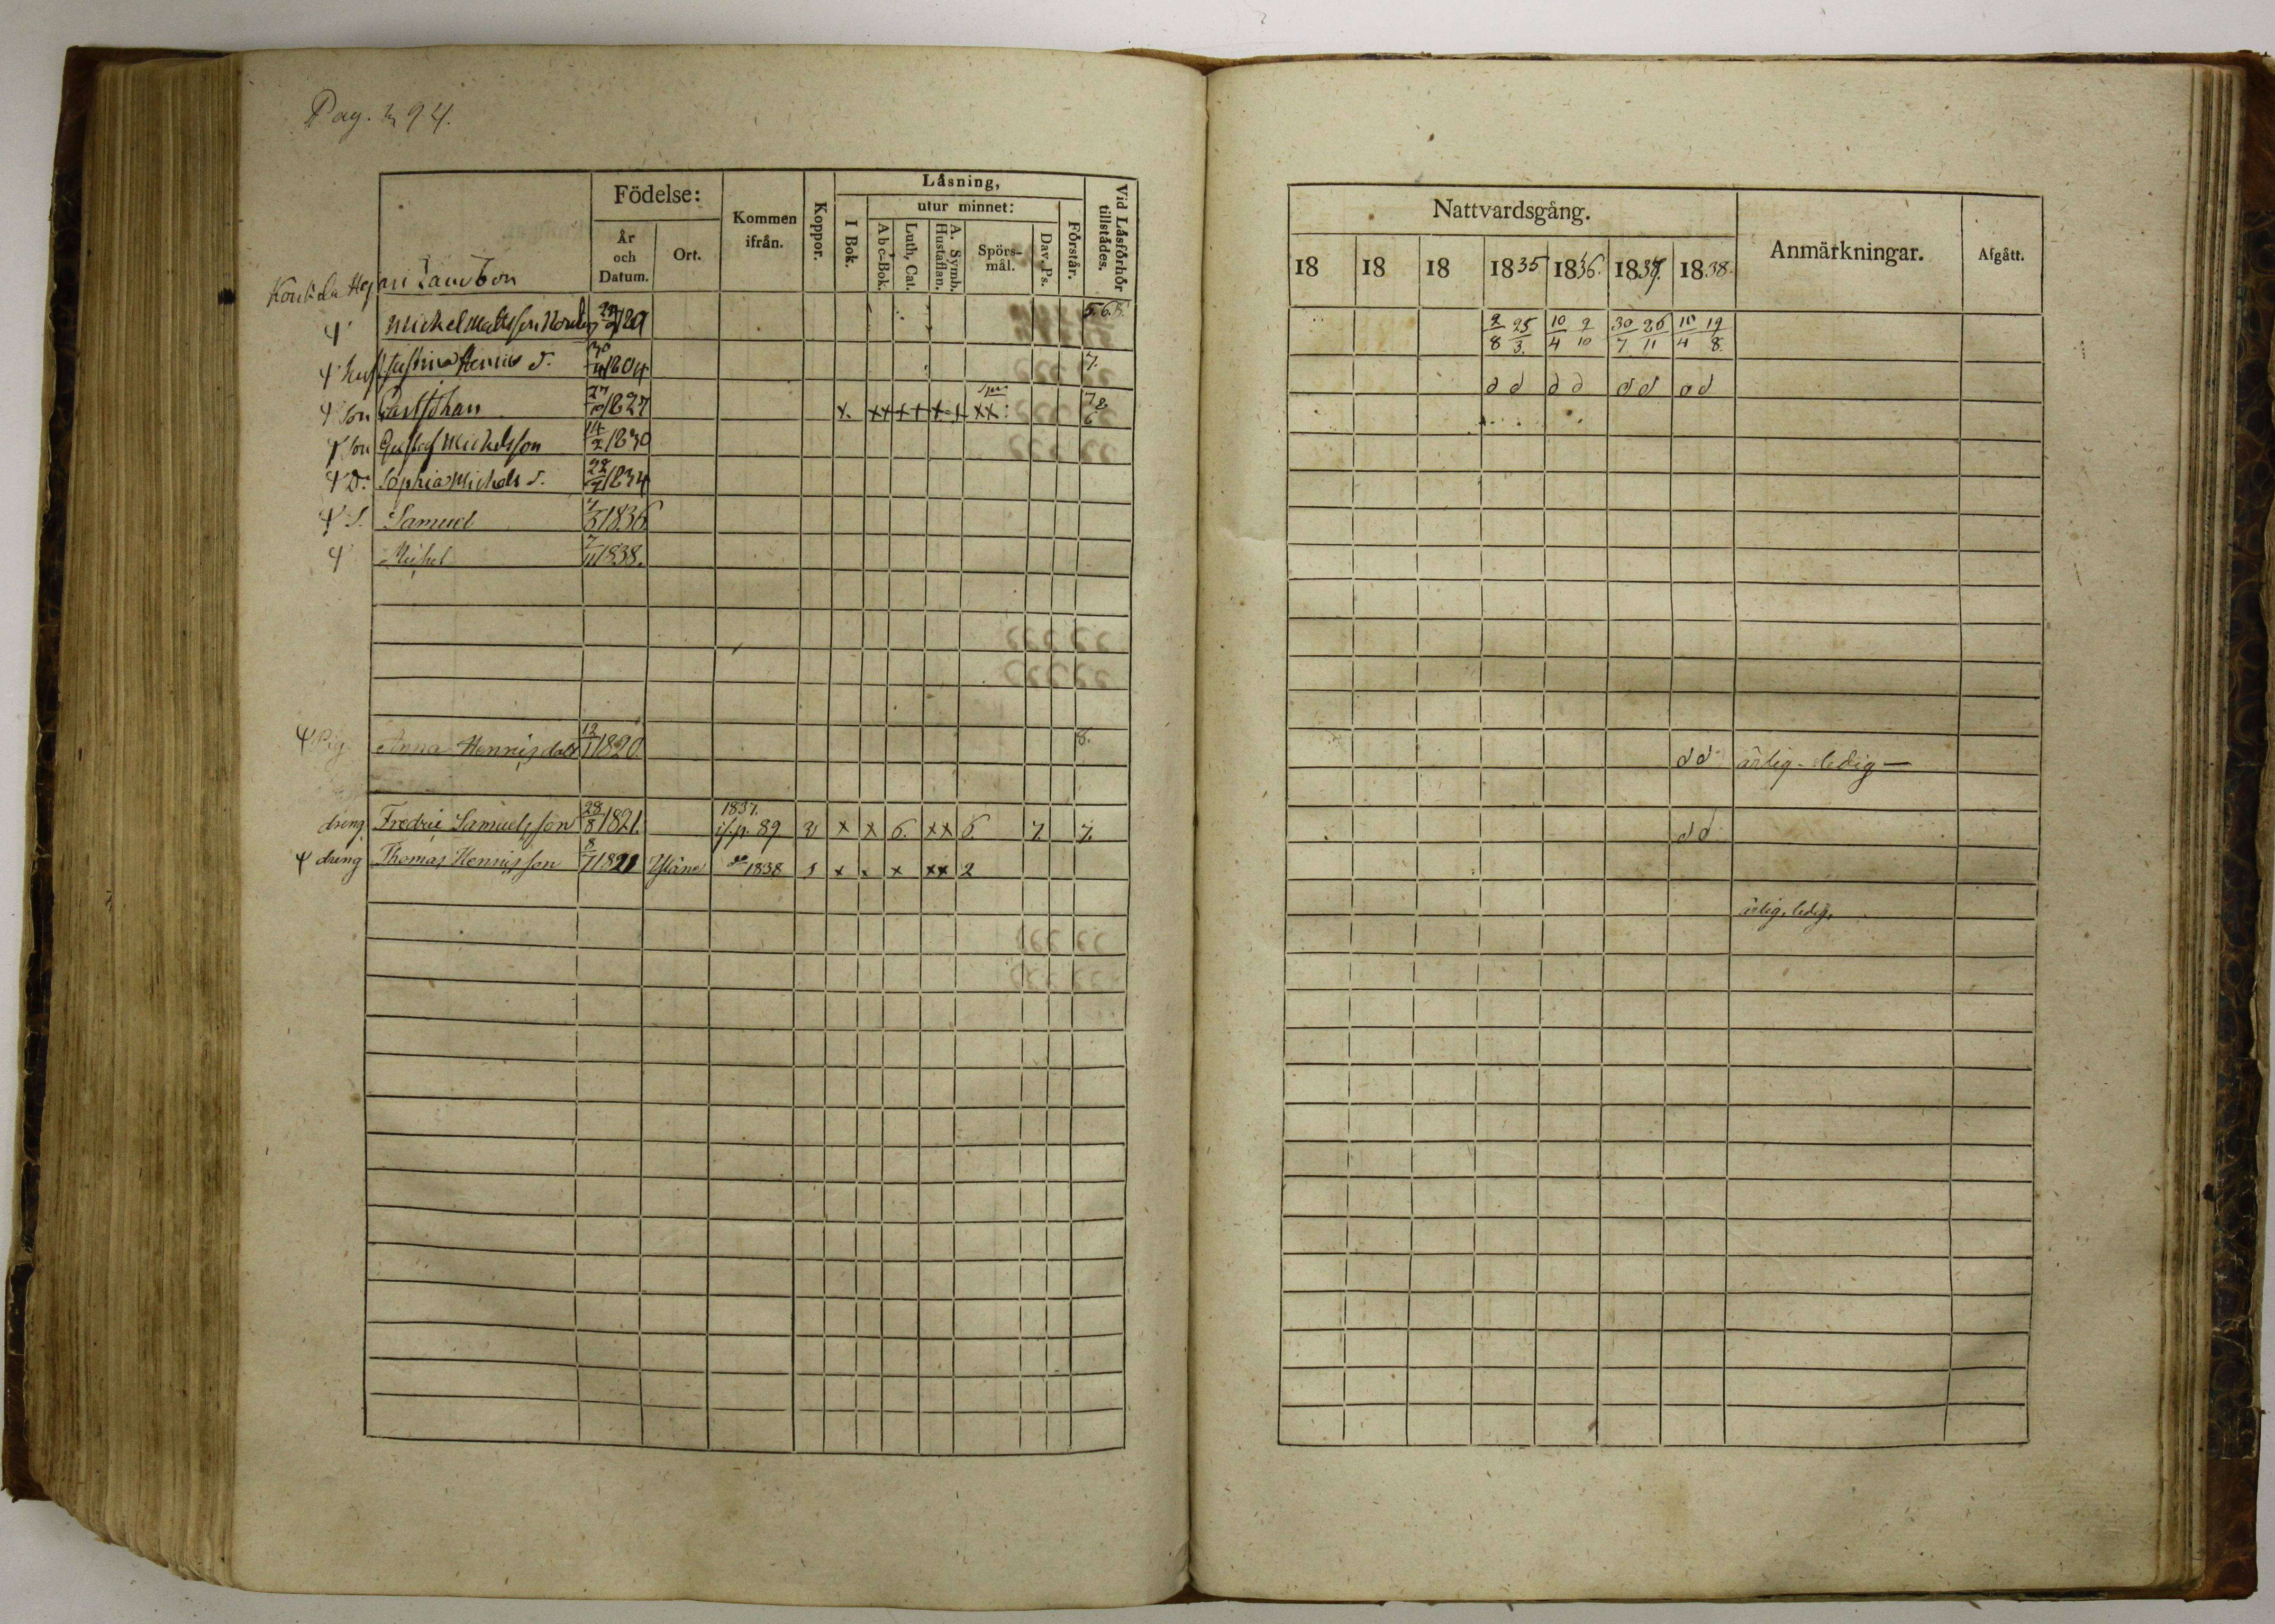 Pag. 294.
Födelse:
År och Datum.
Ort.
Kommen ifrån.
Koppor.
Läsning,
I Bok.
utur minnet:
Abc-Bok.
Luth. Cat.
A. Symb. Hustaflan.
Spörsmål.
Dav. Ps.
Förstår.
Vid Läsförhör tillstädes.
Ψ Michel Mattsson 5.6.8.
Ψ Hust Justina Henrics d. 30/11 1804 7.
Ψ Son Carl Johan 27/10 1827 x. xx ++ +-+ xx: 7.8. 6
Ψ Son Gustaf Michelsson 14/2 1830
Ψ D: Sophia Michels d. 28/7 1834
Ψ S. Samuel 1836
Ψ Michel 7/11 1838.
Ψ Pig. Anna Henricsdotr 1820. 8.
dreng Fredric Samuelsson 28/8 1821. 1837. if. p. 89 3 x x 6. xx 6 7. 7.
Ψ dreng Thomas Henricsson 8/7 1821 Yläne 1838 1 x x xx 2
Nattvardsgång.
Anmärkningar.
Afgått.
18 18 18 1835 1836. 1837. 1838.
2/8 25/3. 10/4 9/10 30/7 26/11 15/4 19/8.
d d d d d d d d
d d ärlig - ledig -
d d
ärlig, ledig,